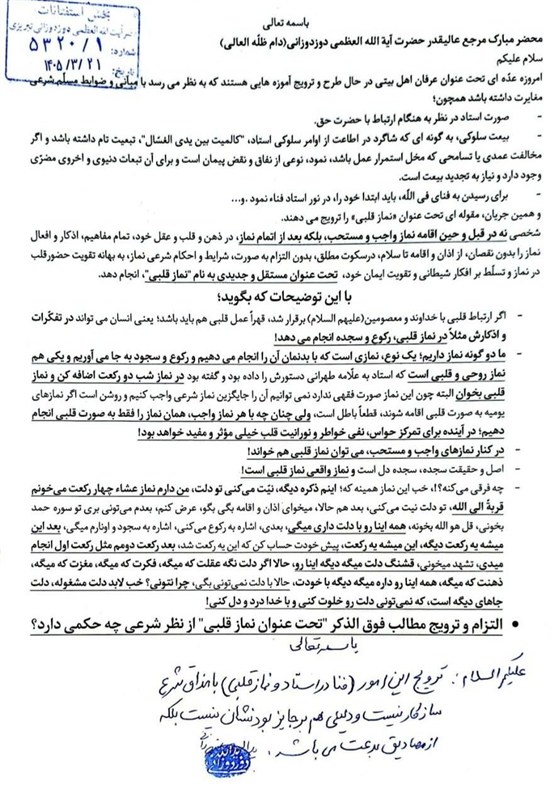 بخش استفتائات
مرآیت الله العظمی دوزدوزانی تبریزی
شماره: ۵۳۲۰/۱
تاریخ: ۱۴۰۵/۳/۲۱
باسمه تعالی
محضر مبارک مرجع عالیقدر حضرت آیة الله العظمی دوزدوزانی(دام ظلّه العالی)
سلام علیکم
امروزه عدّه ای تحت عنوان عرفان اهل بیتی در حال طرح و ترویج آموزه هایی هستند که به نظر می رسد با مبانی و ضوابط مسلّم شرعی
مغایرت داشته باشد همچون؛
- صورت استاد در نظر به هنگام ارتباط با حضرت حق.
- بیعت سلوکی، به گونه ای که شاگرد در اطاعت از اوامر سلوکی استاد، "کالمیت بین یدی الغسّال"، تبعیت تام داشته باشد و اگر
مخالفت عمدی یا تسامحی که مخل استمرار عمل باشد، نمود، نوعی از نفاق و نقض پیمان است و برای آن تبعات دنیوی و اخروی مضرّی
وجود دارد و نیاز به تجدید بیعت است.
- برای رسیدن به فنای فی اللّه، باید ابتدا خود را، در نور استاد فناء نمود .و...
و همین جریان، مقوله ای تحت عنوان «نماز قلبی» را ترویج می دهند.
شخصی نه در قبل و حین اقامه نماز واجب و مستحب، بلکه بعد از اتمام نماز، در ذهن و قلب و عقل خود، تمام مفاهیم، اذکار و افعال
نماز را بدون نقصان، از اذان و اقامه تا سلام، درسکوت مطلق، بدون التزام به صورت، شرایط و احکام شرعی نماز، به بهانه تقویت حضورقلب
در نماز و تسلّط بر افکار شیطانی و تقویت ایمان خود، تحت عنوان مستقل و جدیدی به نام "نماز قلبی"، انجام دهد.
با این توضیحات که بگوید؛
- اگر ارتباط قلبی با خداوند و معصومین(علیهم السلام) برقرار شد، قهراً عمل قلبی هم باید باشد؛ یعنی انسان می تواند در تفکّرات
و اذکارش مثلاً در نماز قلبی، رکوع و سجده انجام می دهد!
- ما دو گونه نماز داریم؛ یک نوع، نمازی است که با بدنمان آن را انجام می دهیم و رکوع و سجود به جا می آوریم و یکی هم
نماز روحی و قلبی است که استاد به علّامه طهرانی دستورش را داده بود و گفته بود در نماز شب دو رکعت اضافه کن و نماز
قلبی بخوان البته چون این نماز صورت فقهی ندارد نمی توانیم آن را جایگزین نماز شرعی واجب کنیم و روشن است اگر نمازهای
یومیه به صورت قلبی اقامه شوند، قطعاً باطل است، ولی چنان چه با هر نماز واجب، همان نماز را فقط به صورت قلبی انجام
دهیم؛ در آینده برای تمرکز حواس، نفی خواطر و نورانیت قلب خیلی مؤثر و مفید خواهد بود!
- در کنار نمازهای واجب و مستحب، می توان نماز قلبی هم خواند!
- اصل و حقیقت سجده، سجده دل است و نماز واقعی نماز قلبی است!
- چه فرقی می‌کنه؟!، خب این نماز همینه که؛ اینم ذکره دیگه، نیّت می‌کنی تو دلت، من دارم نماز عشاء چهار رکعت می‌خونم
قربةً الی الله، تو دلت نیت می‌کنی، بعد هم حالا، میخوای اذان و اقامه بگی بگو، عرض کنم، بعدم می‌تونی بری تو سوره حمد
بخونی، قل هو الله بخونه، همه اینا رو با دلت داری میگی، بعدی، اشاره به رکوع می‌کنی، اشاره به سجود و اونارم میگی، بعد این
میشه یه رکعت دیگه، این میشه یه رکعت، پیش خودت حساب کن که این یه رکعت شد، بعد رکعت دومم مثل رکعت اول انجام
میدی، تشهد میخونی، قشنگ دلت میگه دیگه اینا رو، حالا اگر دلت نگه عقلت که میگه، فکرت که میگه، مغزت که میگه،
ذهنت که میگه، همه اینا رو داره میگه دیگه با خودت، حالا با دلت نمی‌تونی بگی، چرا نتونی؟ خب لابد دلت مشغوله، دلت
جاهای دیگه است، که نمی‌تونی دلت رو خلوت کنی و با خدا درد و دل کنی!
• التزام و ترویج مطالب فوق الذکر "تحت عنوان نماز قلبی" از نظر شرعی چه حکمی دارد؟
باسمه تعالی
علیکم السلام؛ ترویج این امور (فنا در استاد و نماز قلبی) با مذاق شرع
سازگار نیست و دلیلی هم بر جایز بودنشان نیست بلکه
از مصادیق بدعت می باشد.